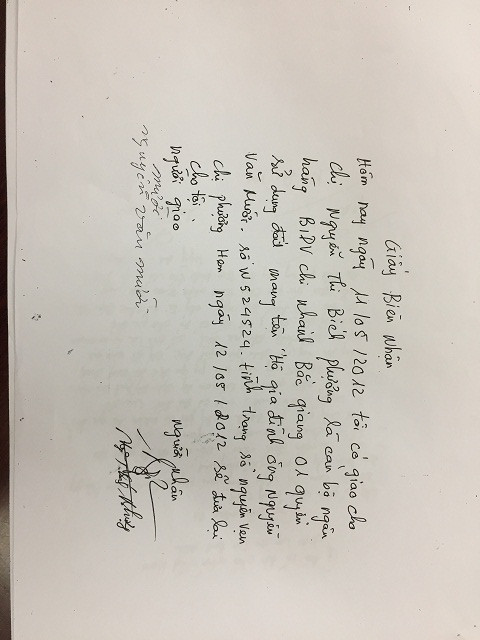 Giấy Biên Nhận
Hôm nay ngày 11/05/2012 tôi có giao cho
chị Nguyễn Thị Bích phượng là cán bộ ngân
hàng BIDV chi nhánh Bắc giang 01 quyển
sử dụng đất mang tên "Hộ gia đình ông Nguyễn
Văn Mười. số W524524. tình trạng sổ nguyên vẹn
chị phượng Hẹn ngày 12/05/2012 sẽ đưa lại
cho tôi.
Người giao
mười
nguyễn văn mười
Người nhận